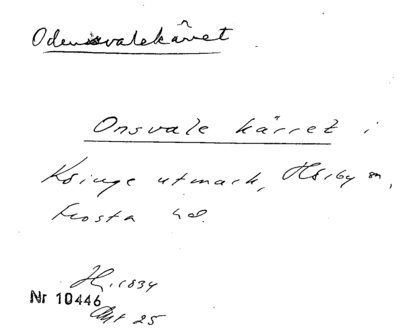 Odensvalekärret
Onsvale kärret i
Ksinge utmark, Hörby sn,
Frosta hd.
H. 1834
Nr 10446
Akt 25